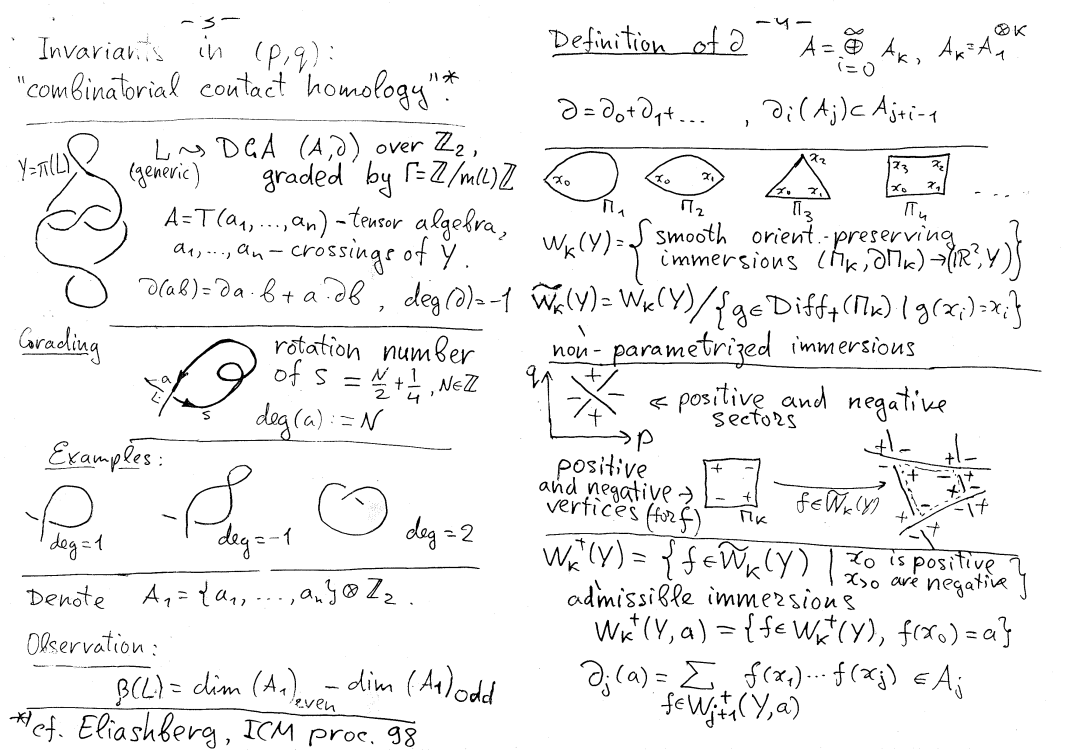 -3-
Invariants in (p,q):
"combinatorial contact homology"*
Y=π(L)
L ⇝ DGA (A,∂) over ℤ₂,
(generic) graded by Γ=ℤ/m(L)ℤ
A=T(a₁,...,aₙ)-tensor algebra,
a₁,...,aₙ-crossings of Y.
∂(ab)=∂a·b+a·∂b, deg(∂)=-1
Grading
a
L
s
rotation number
of s = N/2+1/4, N∈ℤ
deg(a):=N
Examples:
deg=1
deg=-1
deg=2
Denote A₁={a₁,...,aₙ}⊗ℤ₂.
Observation:
β(L)=dim(A₁)even-dim(A₁)odd
*) cf. Eliashberg, ICM proc. 98
-4-
Definition of ∂
A=⊕_{i=0}^{∞} A_k, A_k=A₁^{⊗k}
∂=∂₀+∂₁+... , ∂ᵢ(Aⱼ)⊂A_{j+i-1}
x₀ Π₁
x₀ x₁ Π₂
x₂ x₀ x₁ Π₃
x₃ x₂ x₀ x₁ Π₄
....
W_k(Y)={smooth orient.-preserving
immersions (Π_k,∂Π_k)→(ℝ²,Y)}
W̃_k(Y)=W_k(Y)/{g∈Diff₊(Π_k)|g(xᵢ)=xᵢ}
non-parametrized immersions
q
p
+ - - +
⇐ positive and negative
sectors
positive
and negative →
vertices (for f)
+ -
- +
Π_k
f∈W̃_k(Y)
+ - + -
- + + -
+ - - +
+ -
W_k⁺(Y)={f∈W̃_k(Y) | x₀ is positive
x_{>0} are negative}
admissible immersions
W_k⁺(Y,a)={f∈W_k⁺(Y), f(x₀)=a}
∂ⱼ(a)=∑_{f∈W⁺_{j+1}(Y,a)} f(x₁)...f(xⱼ) ∈Aⱼ